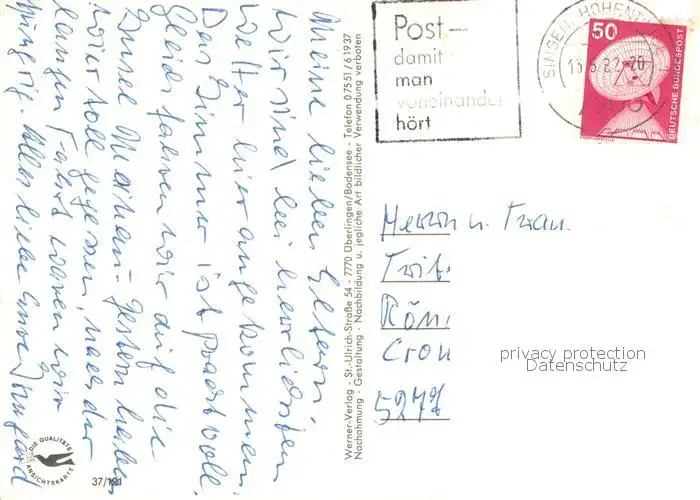 Meine lieben Eltern,
wir sind bei herrlichstem
Wetter hier angekommen.
Das Zimmer ist prachtvoll.
Gleich fahren wir auf die
Insel Mainau. Gestern haben
wir toll gegessen, nach der
langen Fahrt waren wir
hungrig. Alles Liebe Eure Irmgard
DIE QUALITÄTS
ANSICHTSKARTE
37/181
Werner-Verlag - St.-Ulrich-Straße 54 - 7770 Überlingen/Bodensee - Telefon 07551/61937
Nachahmung - Gestaltung - Nachbildung u. jegliche Art bildlicher Verwendung verboten
Post–
damit
man
voneinander
hört
SINGEN, HOHENT
13.5.82-20
50
DEUTSCHE BUNDESPOST
Herrn u. Frau
Fritz
Röm
Cron
527
privacy protection
Datenschutz